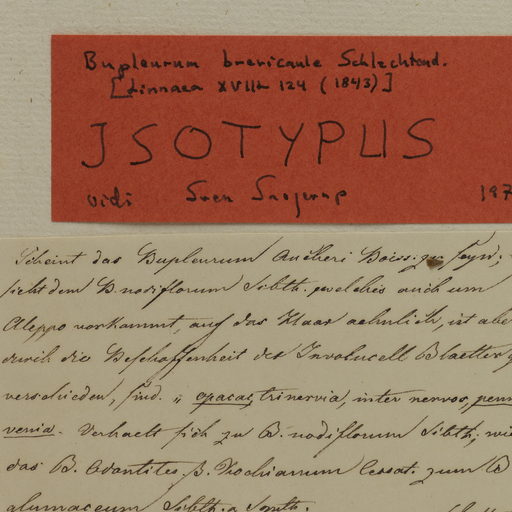 Bupleurum brevicaule Schlechtend.
[Linnaea XVII 124 (1843)]
ISOTYPUS
vidi Sven Snogerup 197
Scheint das Bupleurum Aucheri Boiss. zu seyn;
sieht dem B. nodiflorum Sibth. welches auch um
Aleppo vorkommt, auf das Haar aehnlich, ist abe
durch die Beschaffenheit der Involucell Blaetter
verschieden, sind. „ opacas, trinervia, inter nervos, penn
venia. Verhaelt sich zu B. nodiflorum Sibth, wie
das B. Odontites. β. Rochianum zum B
glumaceum Sibth. & Smth.